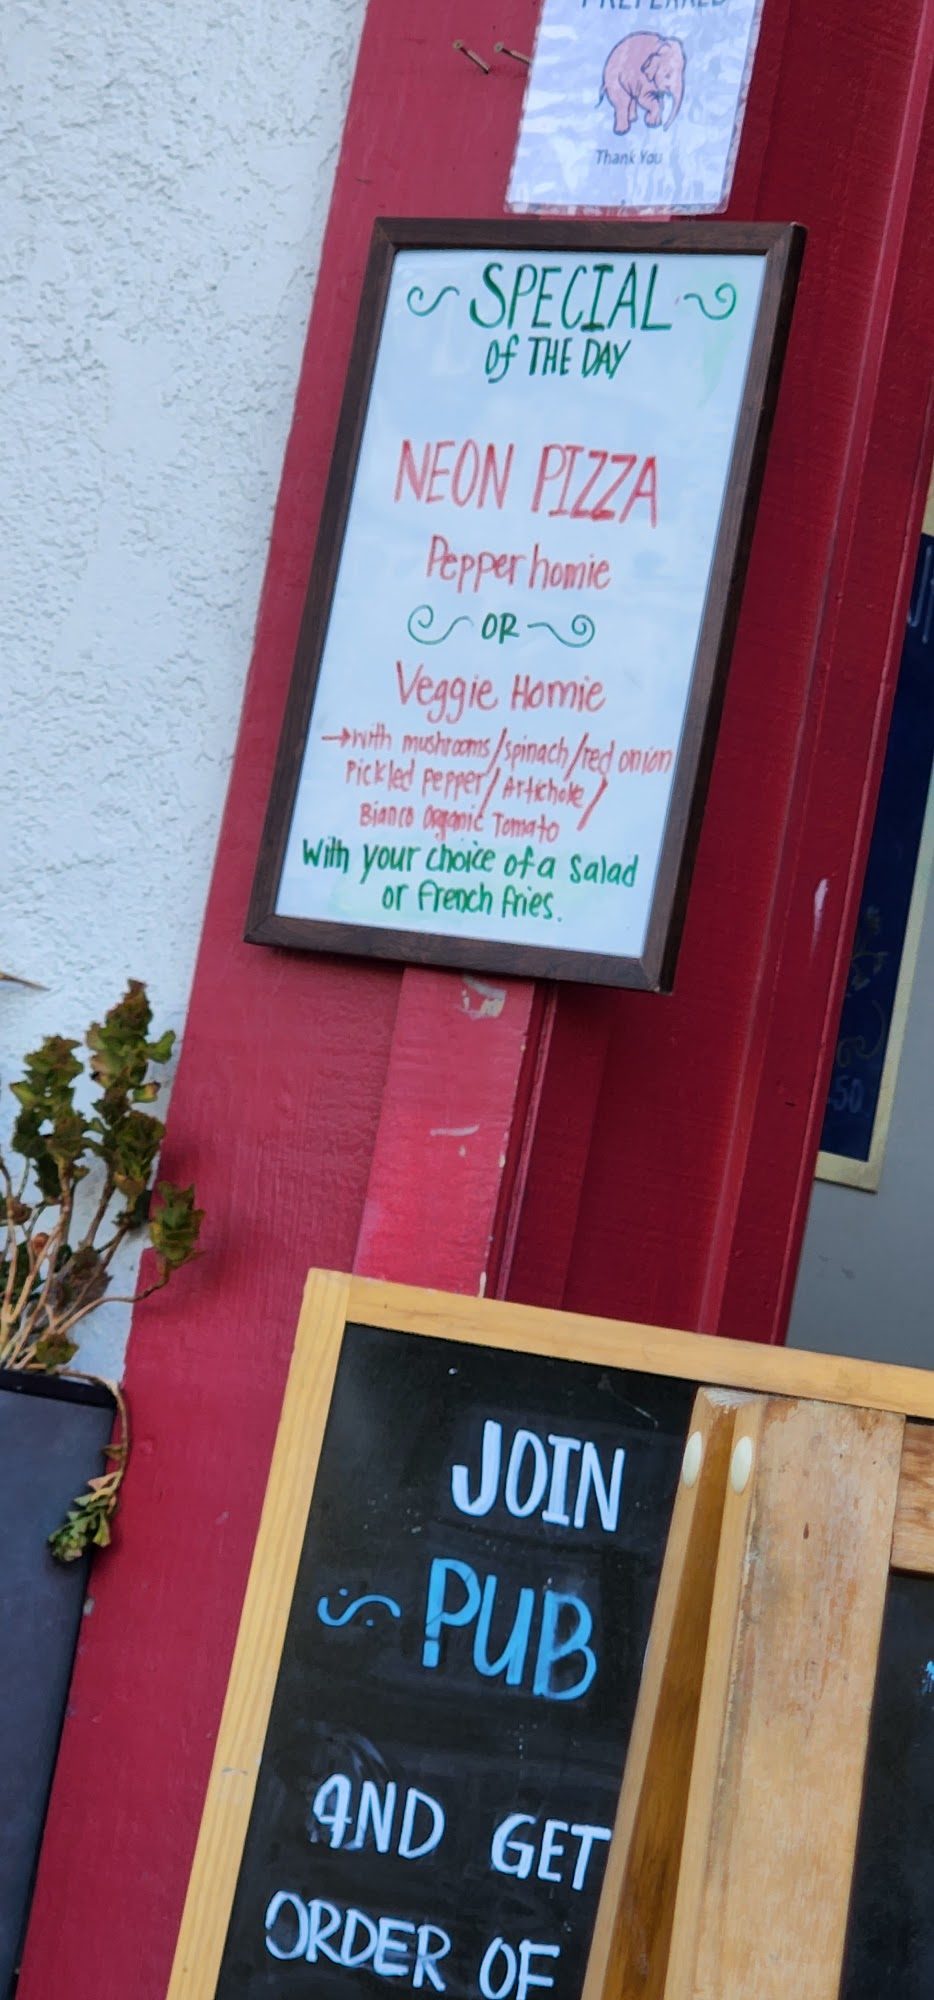 PREFERRED
Thank You
SPECIAL
Of THE DAY
NEON PIZZA
Pepperhomie
OR
Veggie Homie
→with mushrooms/spinach/red onion
Pickled pepper/Artichoke/
Bianco Organic Tomato
With your choice of a Salad
or French fries.
50
JOIN
PUB
AND GET
ORDER OF